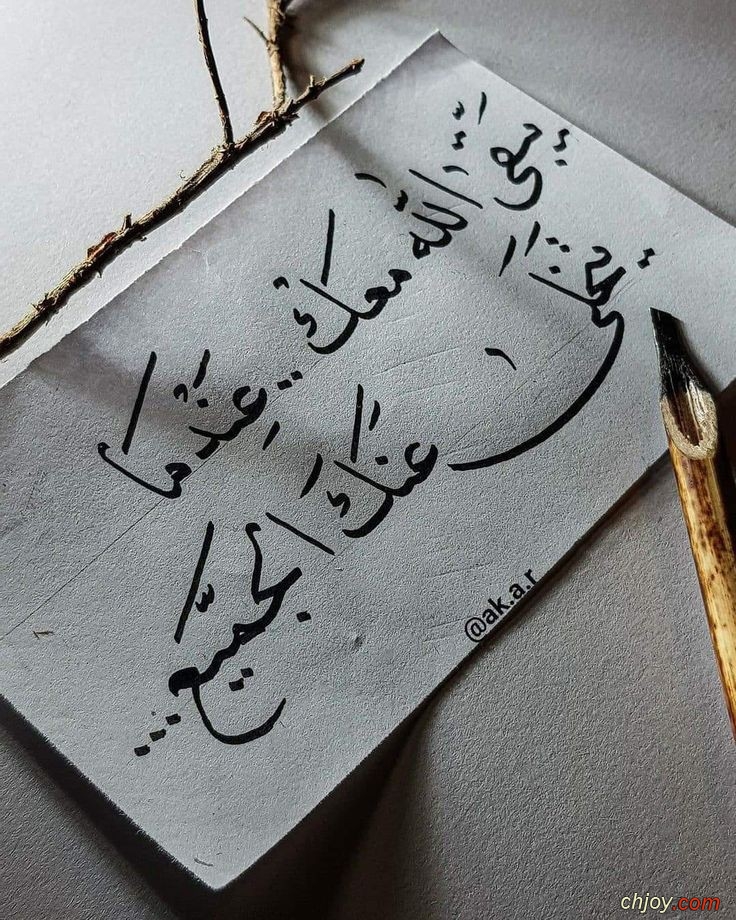 يبقى الله معك عندما
يتخلى عنك الجميع...
@ak.a.r
chjoy.com